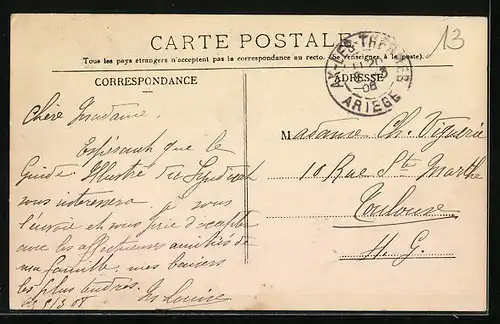 13
CARTE POSTALE
Tous les pays étrangers n'acceptent pas la correspondance au recto. (Se renseigner à la poste).
CORRESPONDANCE
ADRESSE
AX-LES-THERMES
08
ARIEGE
Chère Madame,
Espérant que le
Guide Illustré du Syndicat
vous intéressera je vous
l'envoie et vous prie d'accepter
avec les affectueuses amitiés de
ma famille, mes baisers
les plus tendres.
Louise
Madame Ch. Viguerie
10 Rue Ste Marthe
Toulouse
H. G.